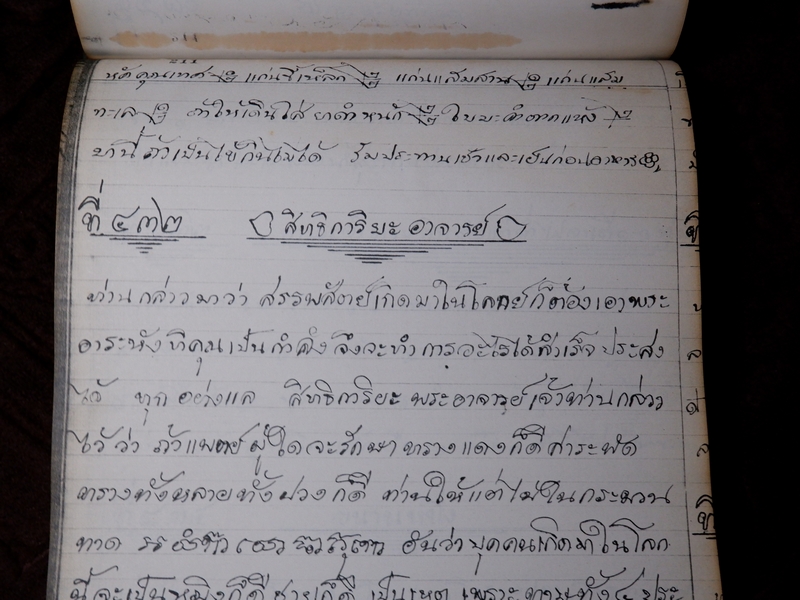 แก่นขี้เหล็ก แก่นแสมสาน แก่นแสม
ทะเล ถ้าให้เดินใส่ยาดำหนัก
ยานี้ถ้าเป็นไข้กินไม่ได้ รับประทานเช้าและเย็นก่อนอาหาร
ที่ ๔๓๒ สิทธิการิยะ อาจารย์
ท่านกล่าวมาว่า สรรพสัตย์เกิดมาในโลกย์ก็ต้องเอาพระ
อาระหัง ทิคุณเป็นกำลัง จึงจะทำการอะไรได้สำเร็จ ประสง
ได้ ทุกอย่างแล สิทธิการิยะ พระอาจารย์เจ้าท่านกล่าว
ไว้ว่า ถ้าแพทย์ผู้ใดจะรักษาทรางแดงก็ดี สาระพัด
ทรางทั้งหลายทั้งปวงก็ดี ท่านให้แต่ไม่ในกระบวน
ทาด อันว่าบุคคนเกิดมาในโลก
นี้จะเป็นหญิงก็ดีชายก็ดี เป็นเหตุเพราะทาษทั้ง